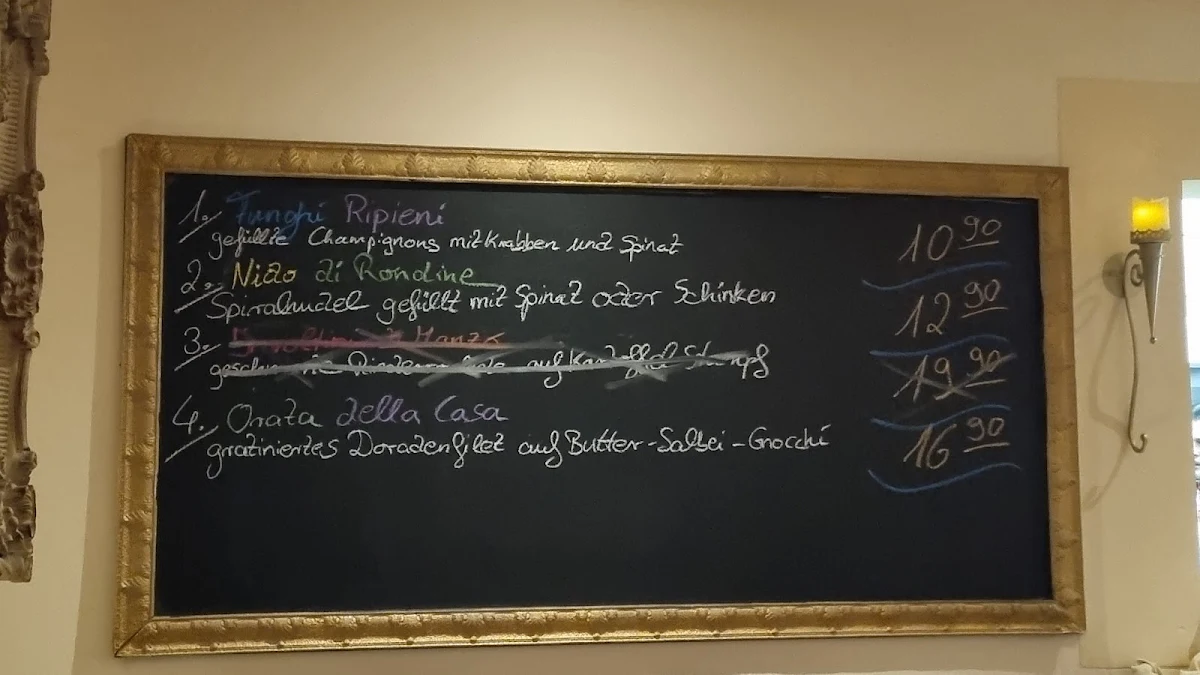 1. Funghi Ripieni
gefüllte Champignons mit Krabben und Spinat 10 90
2. Nido di Rondine
Spiralnudel gefüllt mit Spinat oder Schinken 12 90
3. Manzo
auf Kartoffel Stampf 19 90
4. Orata della Casa
gratiniertes Doradenfilet auf Butter-Salbei-Gnocchi 16 90